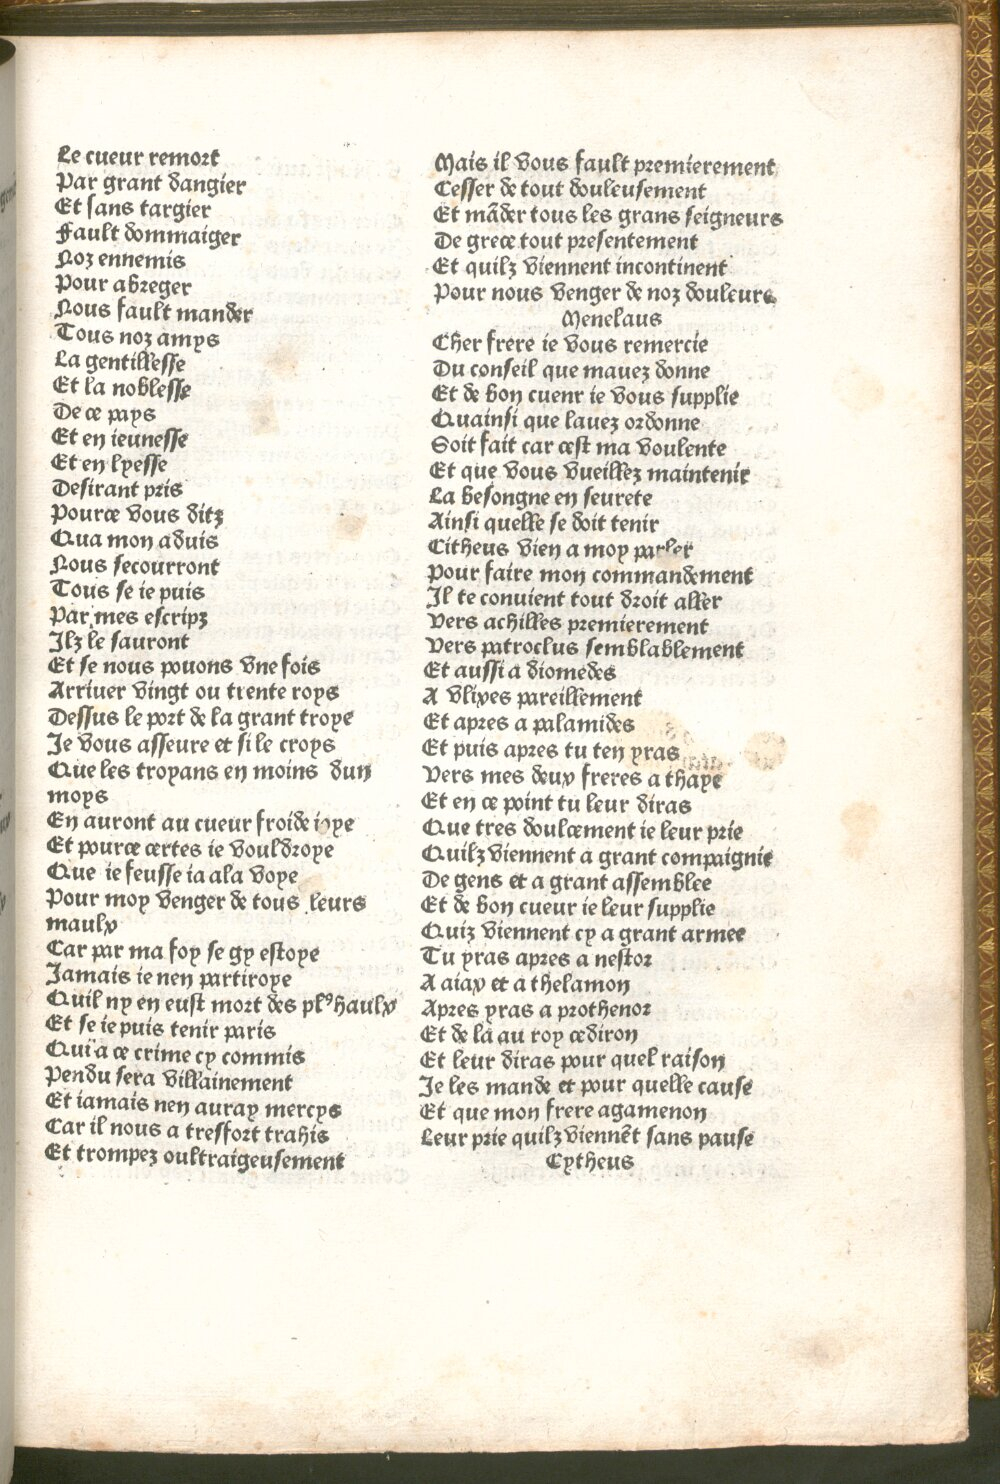 Le cueur remort
Par grant dangier
Et sans targier
Fault dommaiger
Noz ennemis
Pour abreger
Nous fault mander
Tous noz amys
La gentillesse
Et la noblesse
De ce pays
Et en ieunesse
Et en lyesse
Desirant pris
Pource vous ditz
Qua mon aduis
Nous secourront
Tous se ie puis
Par mes escripz
Ilz le sauront
Et se nous pouons vne fois
Arriuer vingt ou trente roys
Dessus le port de la grant troye
Je vous asseure et si le croys
Que les troyans en moins dun
moys
En auront au cueur froide ioye
Et pource certes ie vouldroye
Que ie feusse ia a la voye
Pour moy venger de tous leurs
maulx
Car par ma foy se gy estoye
Jamais ie nen partiroye
Quil ny en eust mort des plꝰ haulx
Et se ie puis tenir paris
Qui a ce crime cy commis
Pendu sera villainement
Et iamais nen auray mercys
Car il nous a tresfort trahis
Et trompez oultraigeusement
Mais il vous fault premierement
Cesser de tout douleusement
Et mãder tous les grans seigneurs
De grece tout presentement
Et quilz viennent incontinent
Pour nous venger de noz douleurs
Menelaus
Cher frere ie vous remercie
Du conseil que mauez donne
Et de bon cuenr ie vous supplie
Quainsi que lauez ordonne
Soit fait car cest ma voulente
Et que vous vueillez maintenir
La besongne en seurete
Ainsi quelle se doit tenir
Citheus vien a moy parler
Pour faire mon commandement
Il te conuient tout droit aller
Vers achilles premierement
Vers patroclus semblablement
Et aussi a diomedes
A vlixes pareillement
Et apres a palamides
Et puis apres tu ten yras
Vers mes deux freres a thaye
Et en ce point tu leur diras
Que tres doulcement ie leur prie
Quilz viennent a grant compaignie
De gens et a grant assemblee
Et de bon cueur ie leur supplie
Quiz viennent cy a grant armee
Tu yras apres a nestor
A aiax et a thelamon
Apres yras a prothenor
Et de la au roy cediron
Et leur diras pour quel raison
Je les mande et pour quelle cause
Et que mon frere agamenon
Leur prie quilz viennẽt sans pause
Cytheus